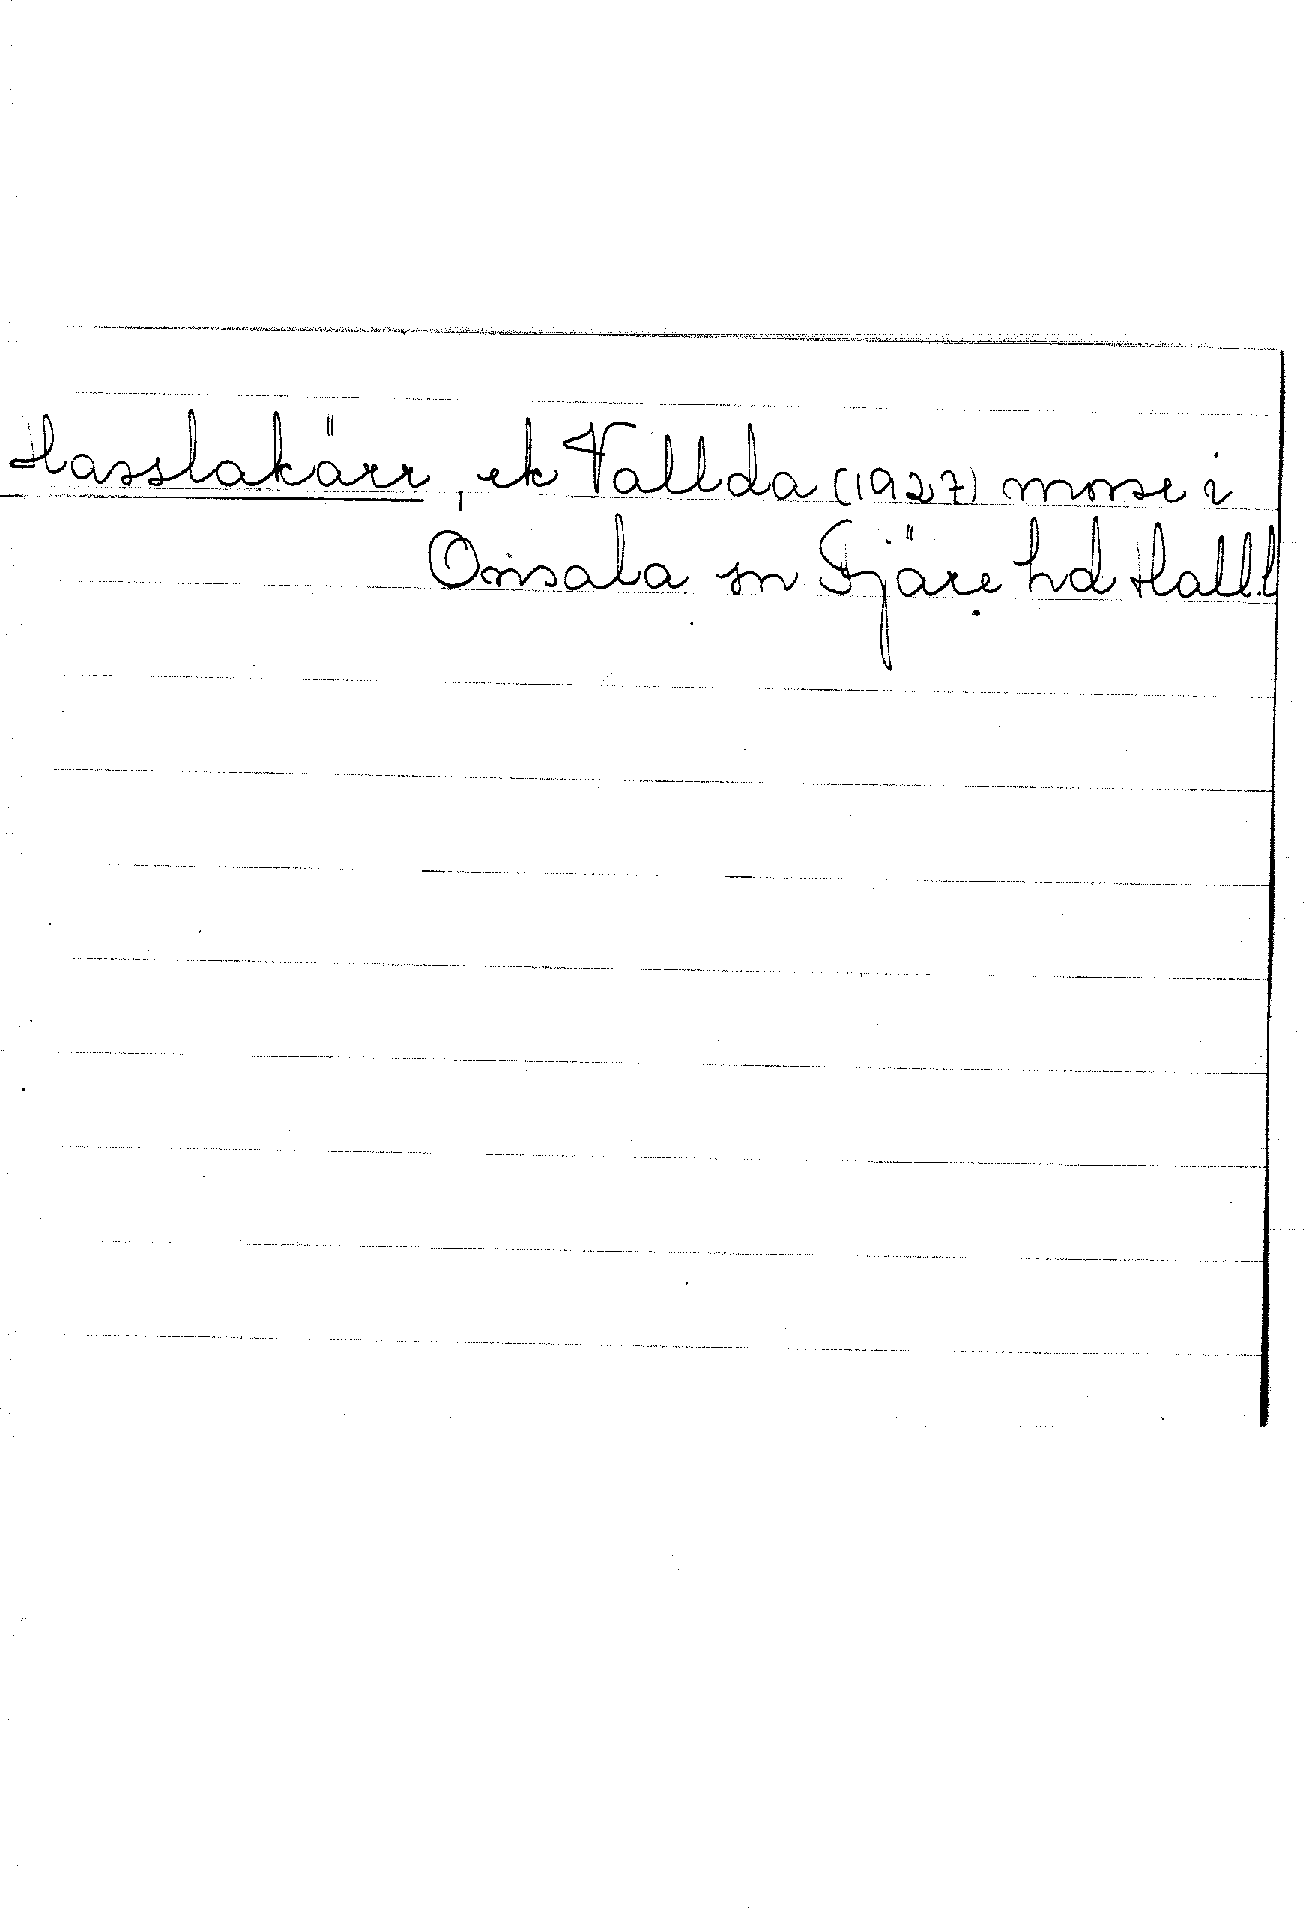 Hasslakärr, ek Vallda (1927) mosse i
Onsala sn Fjäre hd Hall.